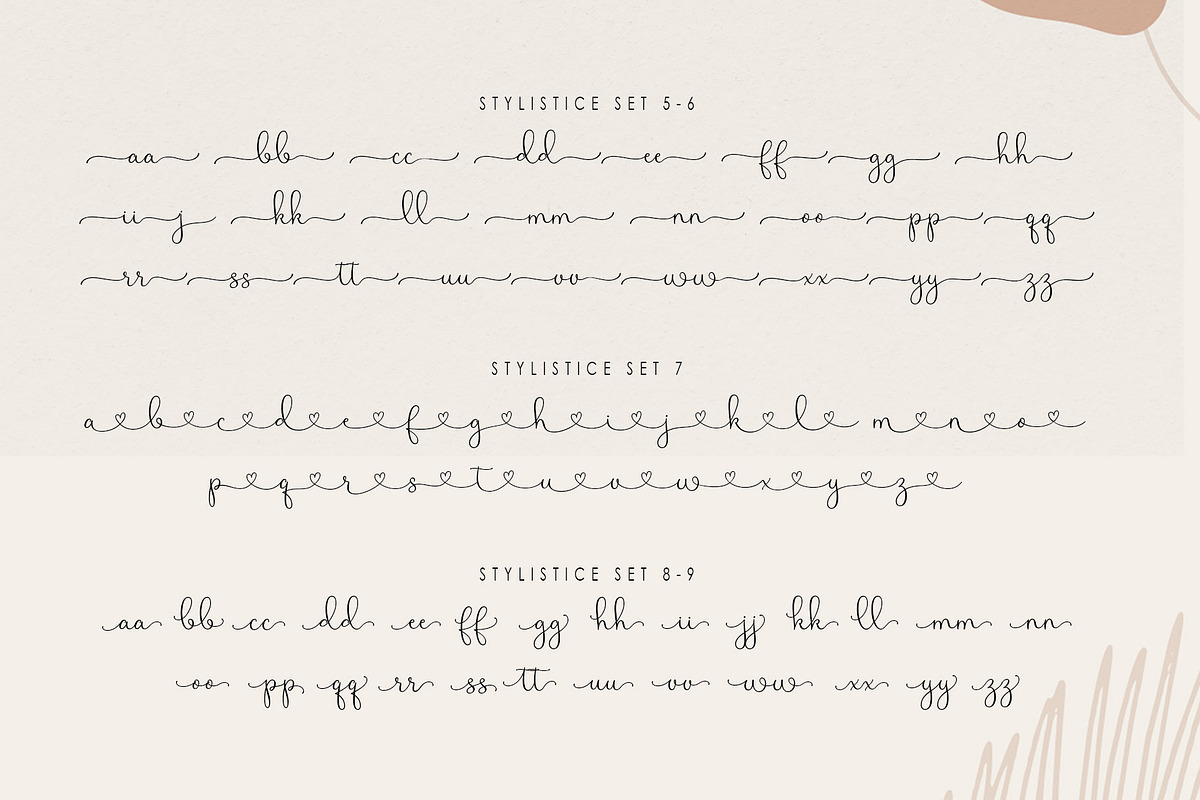 STYLISTICE SET 5-6
aa bb cc dd ee ff gg hh
ii j kk ll mm nn oo pp qq
rr ss tt uu vv ww xx yy zz
STYLISTICE SET 7
a b c d e f g h i j k l m n o
p q r s t u v w x y z
STYLISTICE SET 8-9
aa bb cc dd ee ff gg hh ii jj kk ll mm nn
oo pp qq rr ss tt uu vv ww xx yy zz